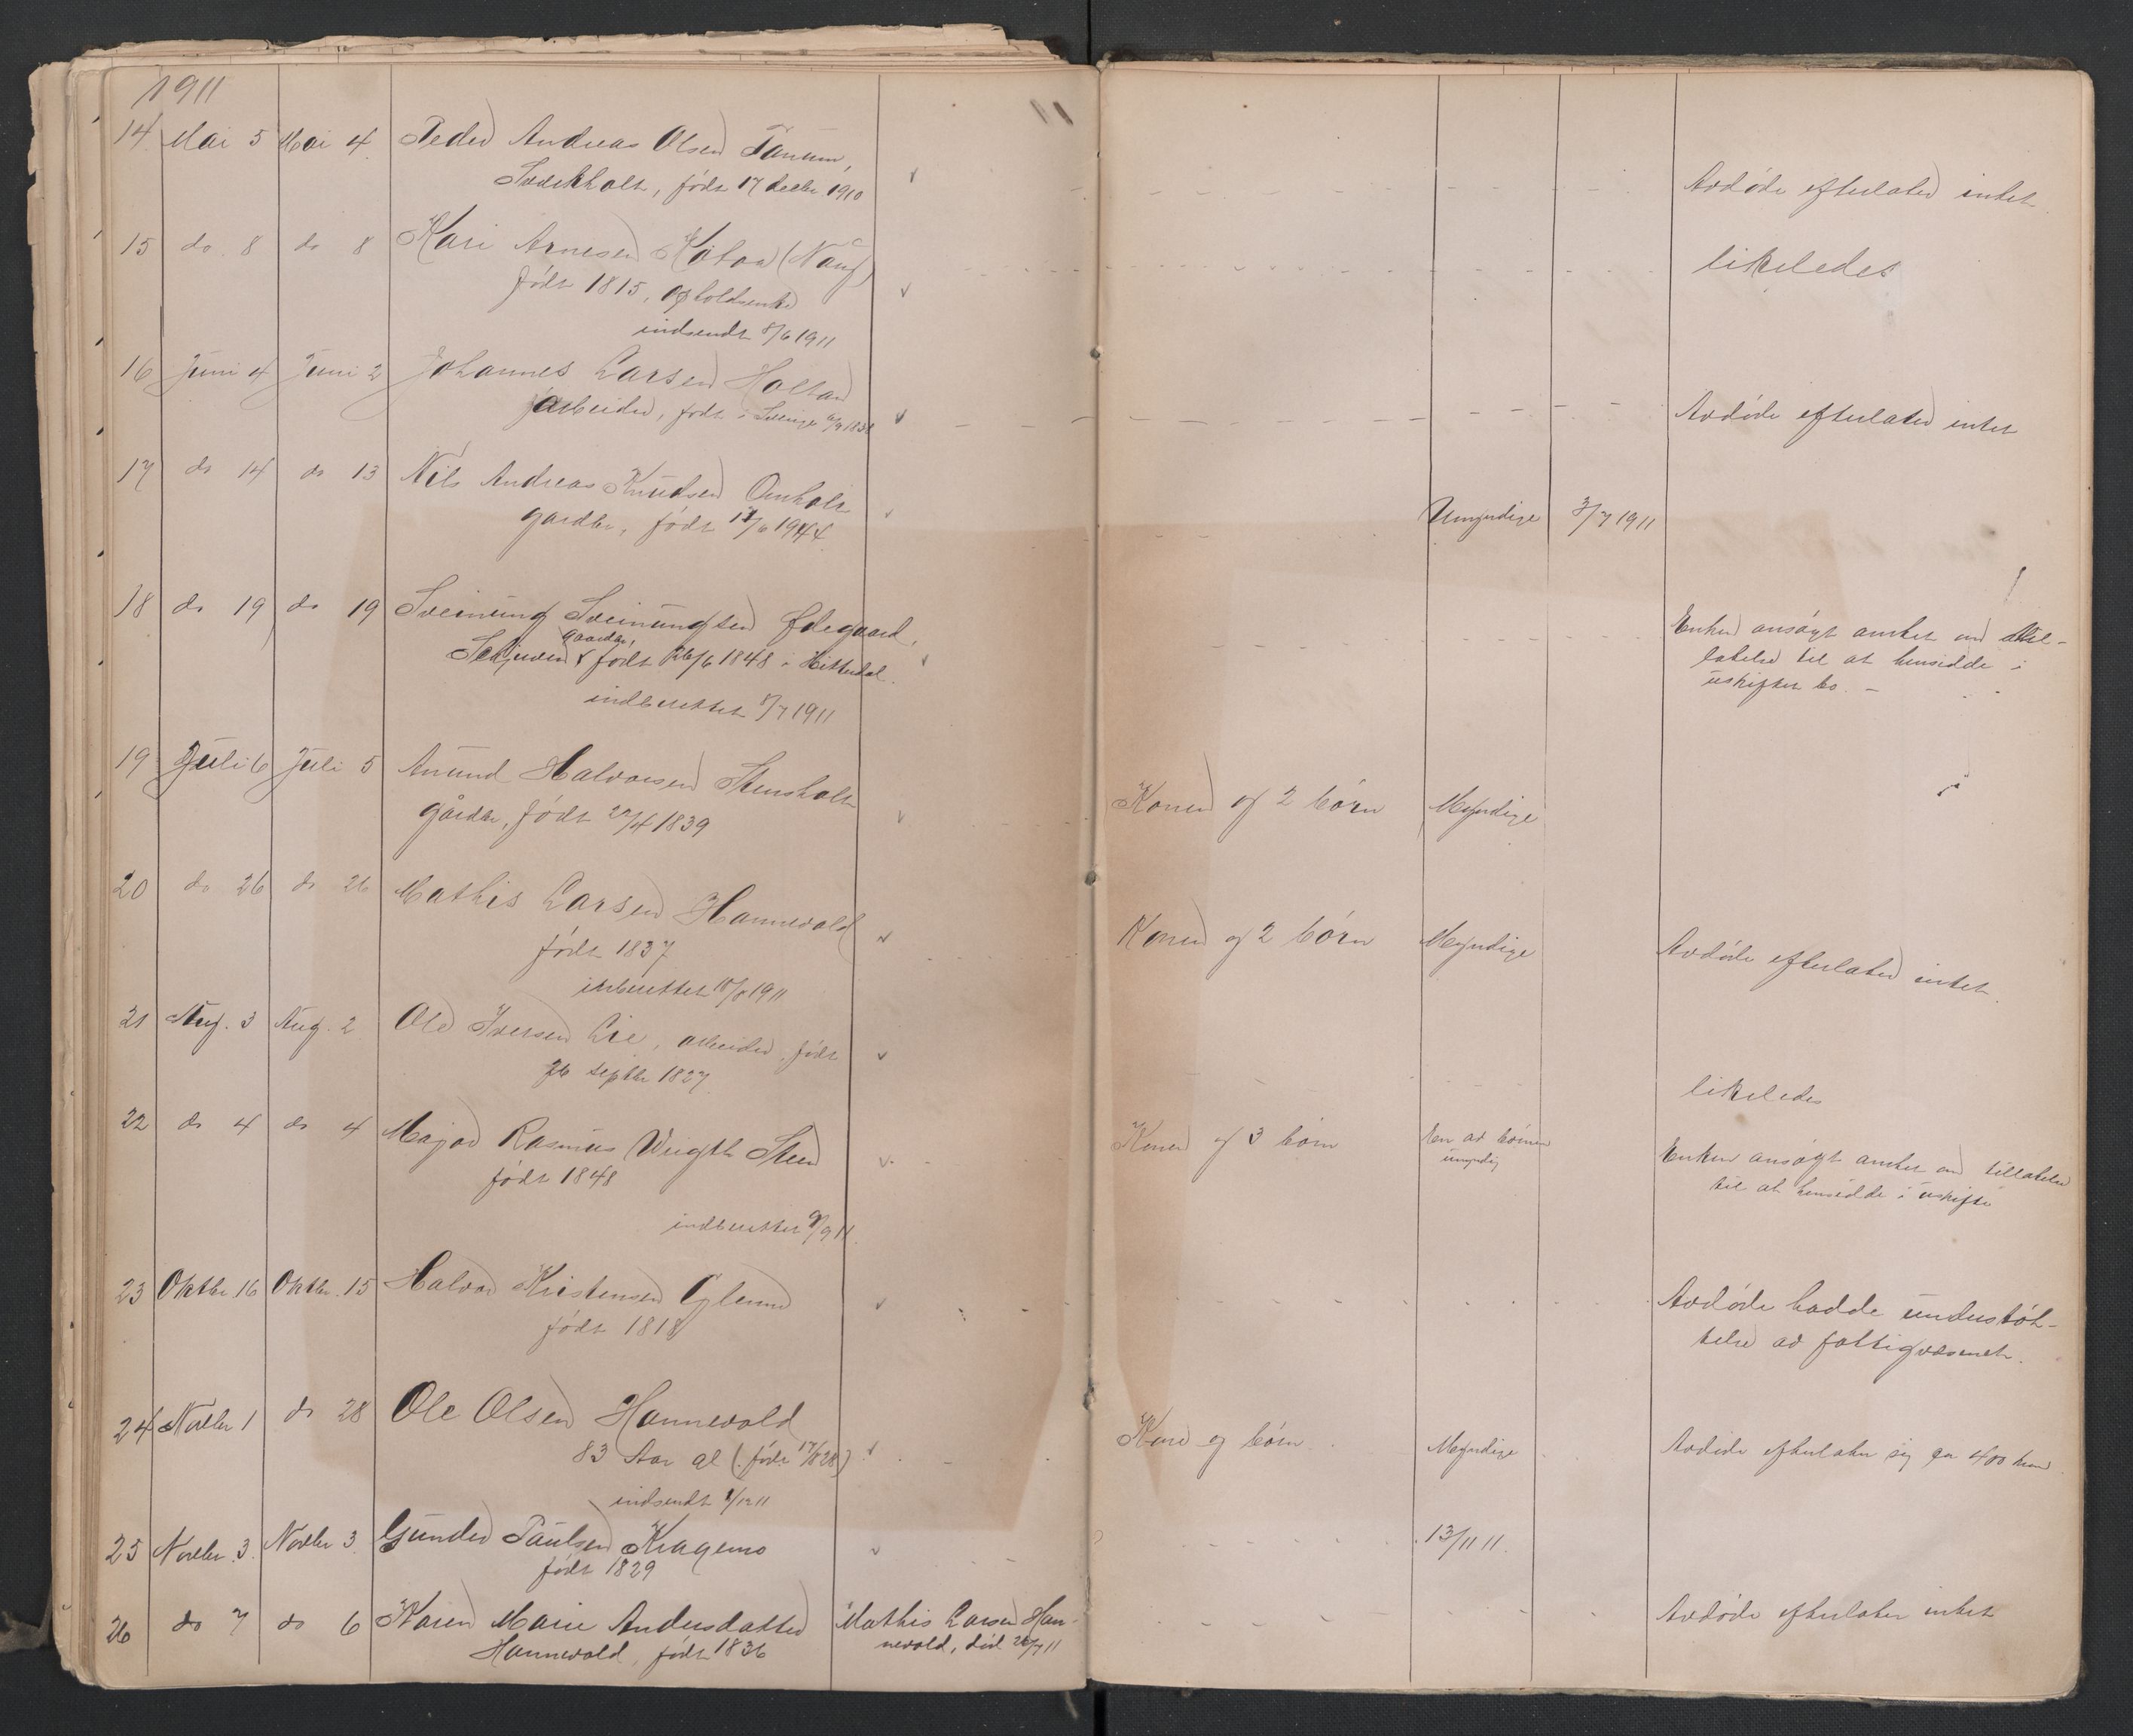 1911
14 Mai 5 Mai 4 Peder Andreas Olsen Tanum, Avdøde efterlater intet
født 17 decbr. 1910
15 do 8 do 8 Kari Arnesen likeledes
født 1815,
indsendt 8/6 1911
16 Juni 4 Juni 2 Johannes Larsen Holtan Avdøde efterlater intet
arbeider, født i
17 do 14 do 13 Nils Andreas Knudsen Omholt Umyndige 3/7 1911
gaardbr., født
18 do 19 do 19 Sveinung Sveinungsen Ødegaard, Enken ansøgt amtet om til-
gaardbr,
født 26/6 1848 i Hitterdal. latelse til at hensidde i
uskiftet bo. –
indberettet 8/7 1911
19 Juli 6 Juli 5 Anund Halvorsen Stensholt Konen og 2 børn Myndige
gårdbr., født 27/4 1839
20 do 26 do 26 Mathis Larsen Hannevold Konen og 2 børn Myndige Avdøde efterlater intet.
født 1837
inberettet 10/8 1911
21 Aug. 3 Aug. 2 Ole Iversen Lie, arbeider, født likeledes
26 septbr 1827
22 do 4 do 4 Major Rasmus Wrigth Steen Konen og 3 børn En av børnene Enken ansøgt amtet om tillatelse
født 1848 umyndig til at hensidde i uskifte
indberettet 9/9 11.
23 Oktbr. 16 Oktbr. 15 Halvor Kristensen Avdøde hadde understøt-
født 1818 telse av fattigvæsenet.
24 Novbr 1 do 28 Ole Olsen Hannevold Kone og børn Myndige Avdøde efterlater sig ca 400 kroner
83 Aar gl (født 17/8 28)
indsendt 1/12 11
25 Novbr. 3. Novbr 3 Gunder Paulsen Kragemo 13/11 11.
født 1829
26 do 7 do 6 Karen Marie Andersdatter Mathis Larsen Han- Avdøde efterlater intet
Hannevold, født 1836 nevold, død 26/7 11